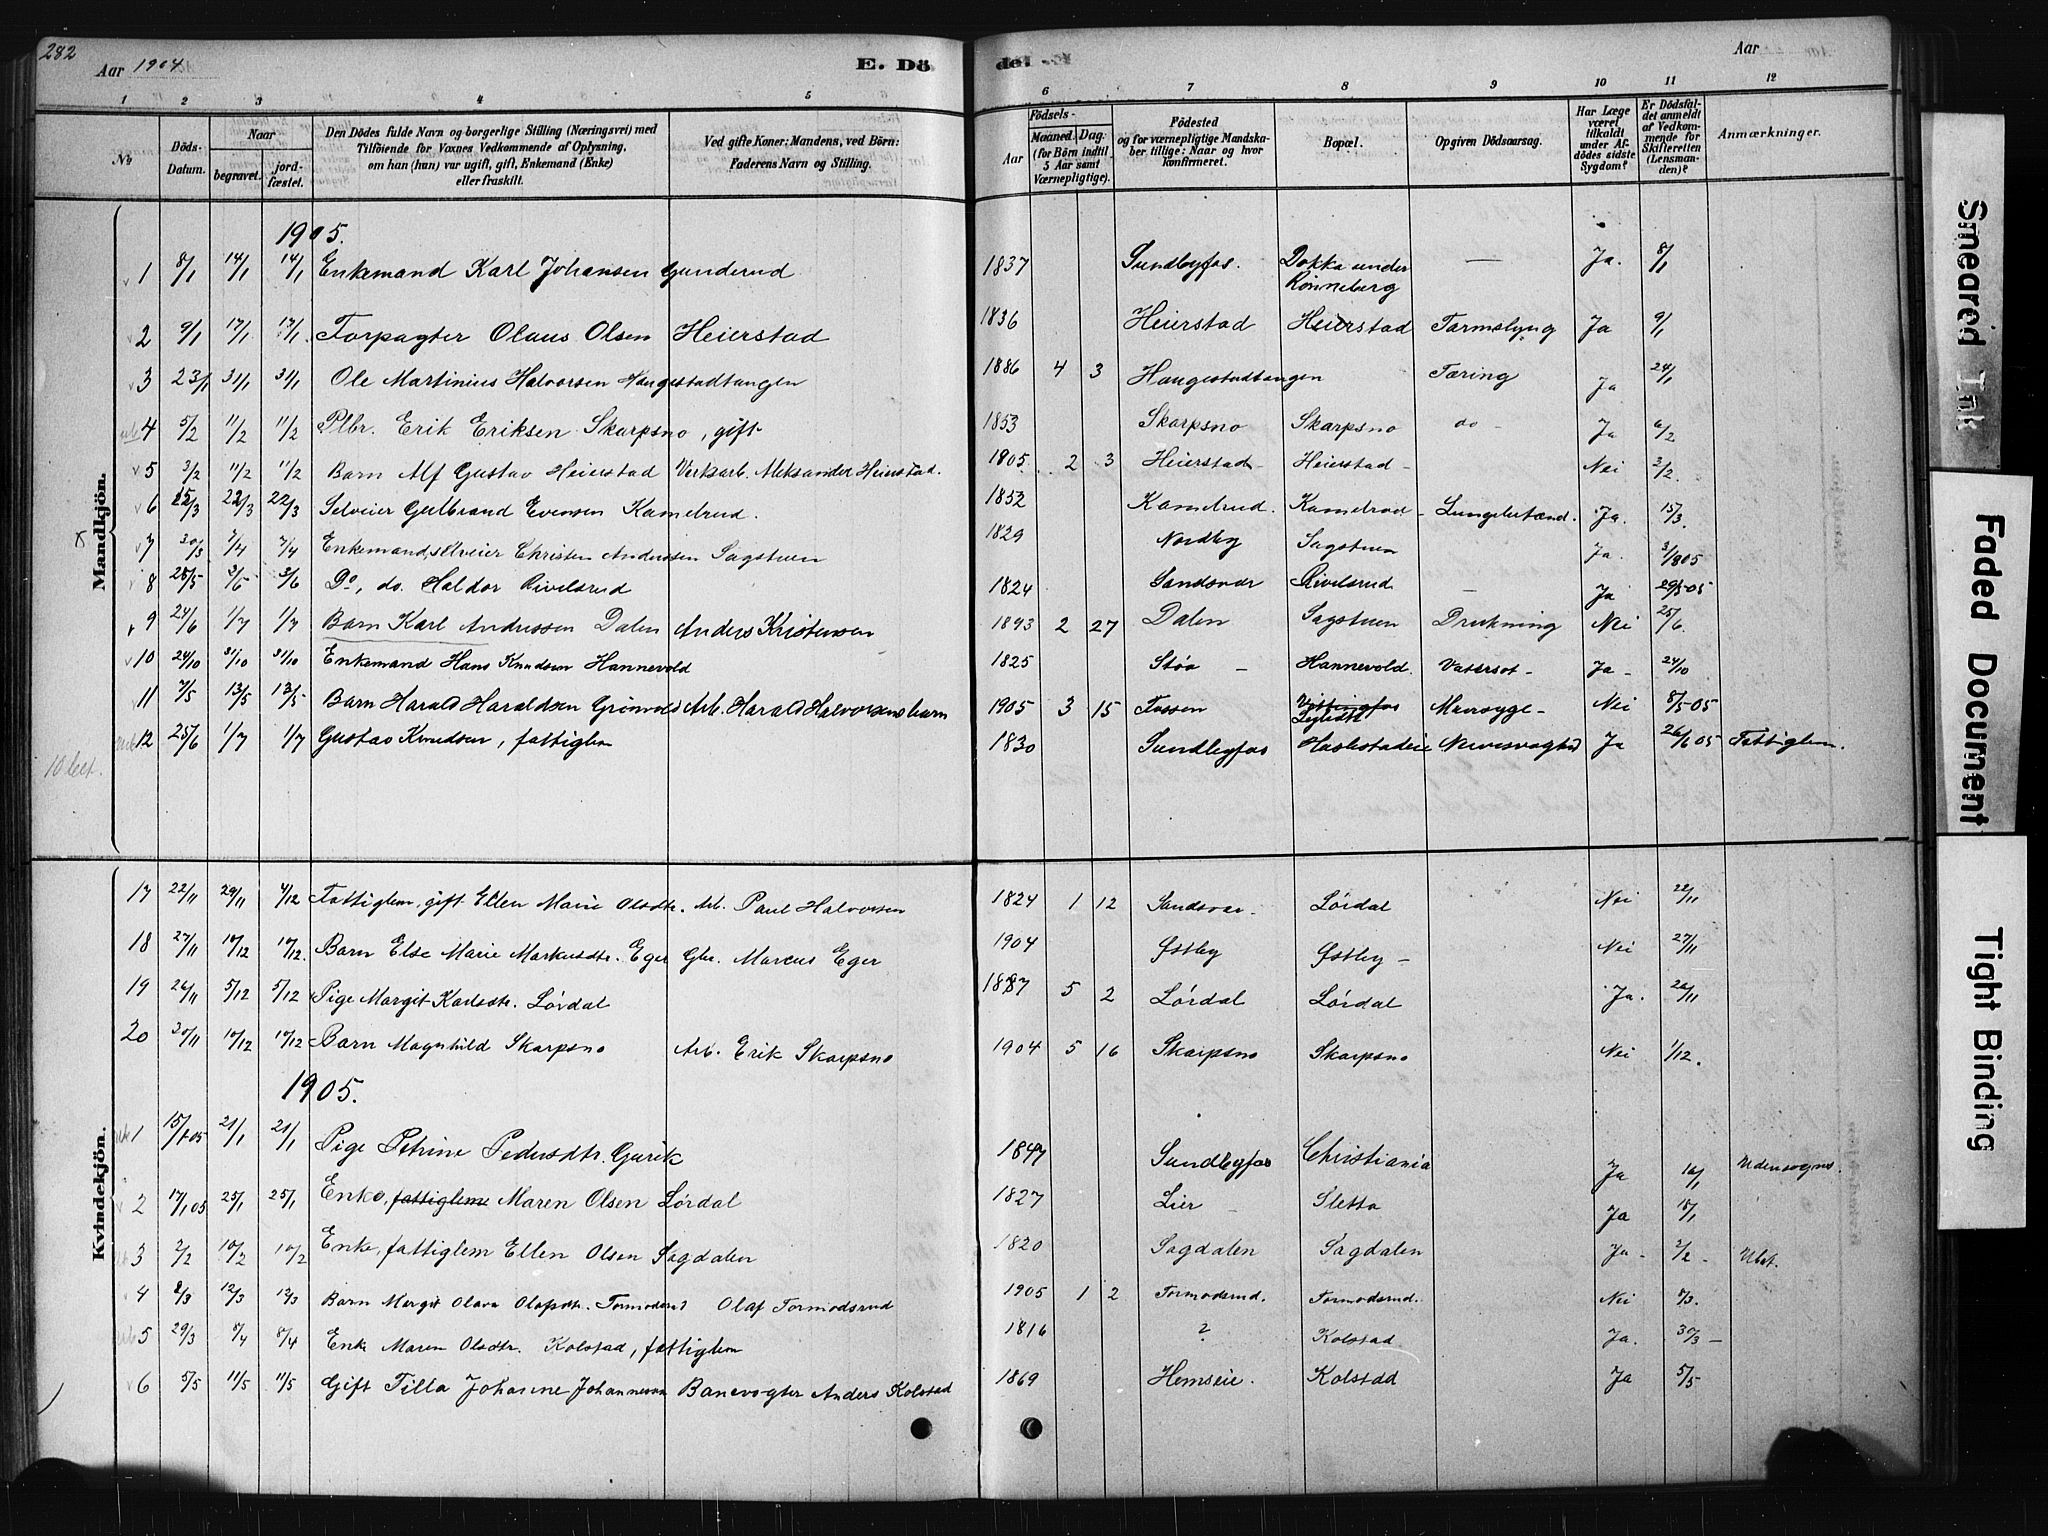 282
Aar 1904
E. Dö
de.
Aar
1 2 3 4 5 6 7 8 9 10 11 12
No
Döds-Datum.
Naar
begravet.
jord-fæstet.
Den Dödes fulde Navn og borgerlige Stilling (Næringsvei) med
Tilföiende for Voxnes Vedkommende af Oplysning,
om han (hun) var ugift, gift, Enkemand (Enke)
eller fraskilt.
Ved gifte Koner: Mandens, ved Börn:
Faderens Navn og Stilling.
Födsels-
Aar
Maaned. Dag.
(for Börn indtil
5 Aar samt
Værnepligtige).
Födested
og for værnepligtige Mandska-
ber tillige: Naar og hvor
konfirmeret.
Bopæl.
Opgiven Dödsaarsag.
Har Læge
været
tilkaldt
under Af-
dödes sidste
Sygdom?
Er Dödsfal-
det anmeldt
af Vedkom-
mende for
Skifteretten
(Lensman-
den)?
Anmærkninger.
Mandkjön.
1905.
1 8/1 14/1 14/1 Enkemand Karl Johansen Gunderud 1837 Sundbyfos. Dokka under Rønneberg — Ja. 8/1
2 9/1 17/1 17/1 Forpagter Olaus Olsen Heierstad 1836 Heierstad Heierstad Tarmslyng Ja 9/1
3 23/1 31/1 31/1 Ole Martinius Halvorsen Haugestadtangen 1886 4 3 Haugestadtangen Tæring Ja 24/1
4 5/2 11/2 11/2 Plbr. Erik Eriksen Skarpsno, gift 1853 Skarpsno Skarpsno do - Ja 6/2
5 3/2 11/2 11/2 Barn Alf Gustav Heierstad Verksarb. Aleksander Heierstad. 1905 2 3 Heierstad - Heierstad - Nei 3/2.
6 15/3 22/3 22/3 Selveier Gulbrand Evensen Kamelrud. 1852 Kamelrud. Kamelrud - Lungebetænd. Ja. 15/3.
7 30/3 7/4 7/4 Enkemand, selveier Christen Anderssen Sagstuen 1829 Nordby Sagstuen Ja.
8 28/5 3/6 3/6 Do, do. Haldor Rivelsrud 1824 Sandsvær Rivelsrud — Ja 29/5 05
9 24/6 1/7 1/7 Barn Karl Anderssen Dalen Anders Kristensen 1893 2 27 Dalen Sagstuen Drukning Nei 25/6.
10 24/10 31/10 31/10 Enkemand Hans Knudsen Hannevold 1825 Støa - Hannevold. Vatersot - Ja - 24/10
11 7/5 13/5 13/5 Barn Harald Haraldsen Grönvold Arb. Harald Halvorsens barn 1905 3 15 Fossen Vittingfos Mavesyge - Nei 8/5 05
12 25/6 1/7 1/7 Gustav Knudsen, fattiglem 1830 Sundbyfos Haslestadeie Ja 26/6 05 Fattiglem.
Kvindekjön.
17 22/11 29/11 4/12 Fattiglem, gift Ellen Marie Olsdtr. Arb. Paul Halvorsen 1824 1 12 Sandsvær. Lørdal Nei 22/11
18 27/11 10/12 10/12. Barn Else Marie Markusdtr. Eger Gbr. Marcus Eger 1904 Østby Østby - Nei 27/11
19 26/11 5/12 5/12 Pige Margit Karlsdtr. Lørdal 1887 5 2 Lørdal Lørdal Ja. 26/11
20 30/11 10/12 10/12 Barn Magnhild Skarpsno Arb. Erik Skarpsno 1904 5 16 Skarpsno Skarpsno Nei 1/12.
1905.
1 15/1 05 21/1 21/1 Pige Petrine Pedersdtr. 1847 Sundbyfos Christiania Ja 16/1 Udensogns.
2 17/1 05 25/1 25/1 Enke, fattiglem Maren Olsen Lørdal 1827 Lier - Sletta Ja 18/1
3 2/2 10/2 10/2 Enke, fattiglem Ellen Olsen Sagdalen 1820 Sagdalen Sagdalen Ja - 2/2 -
4 8/3 12/3 12/3 Barn Margit Olava Olafsdtr. Tormodsrud Olaf Tormodsrud 1905 1 2 Tormodsrud. Tormodsrud. Nei 8/3.
5 29/3 8/4 8/4 Enke Maren Olsdtr. Kolstad, fattiglem 1816 ? Kolstad Ja. 30/3 -
6 5/5 11/5 11/5 Gift Tilla Johanne Johannesen Banevogter Anders Kolstad 1869 Hemseie. Kolstad Ja 5/5
Smeared Ink
Faded Document
Tight Binding